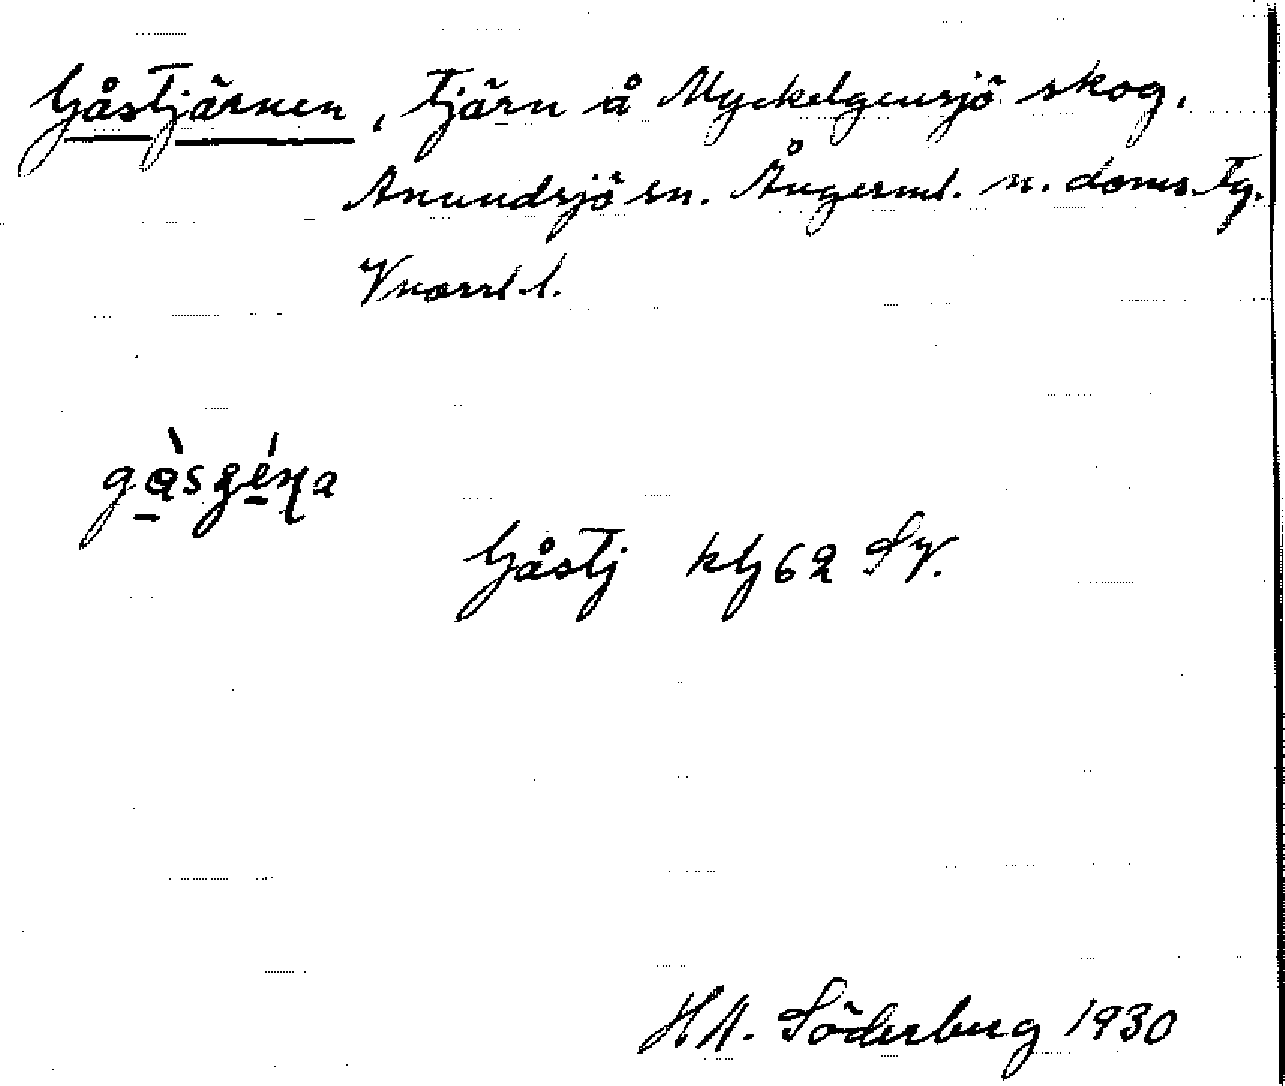 Gåstjärnen, tjärn å Myckelgensjö skog,
Anundsjö sn. Ångerml. n. doms. tg.
Vnorrl. l.
Gåstj kbg 62 SV.
H A. Söderberg 1930